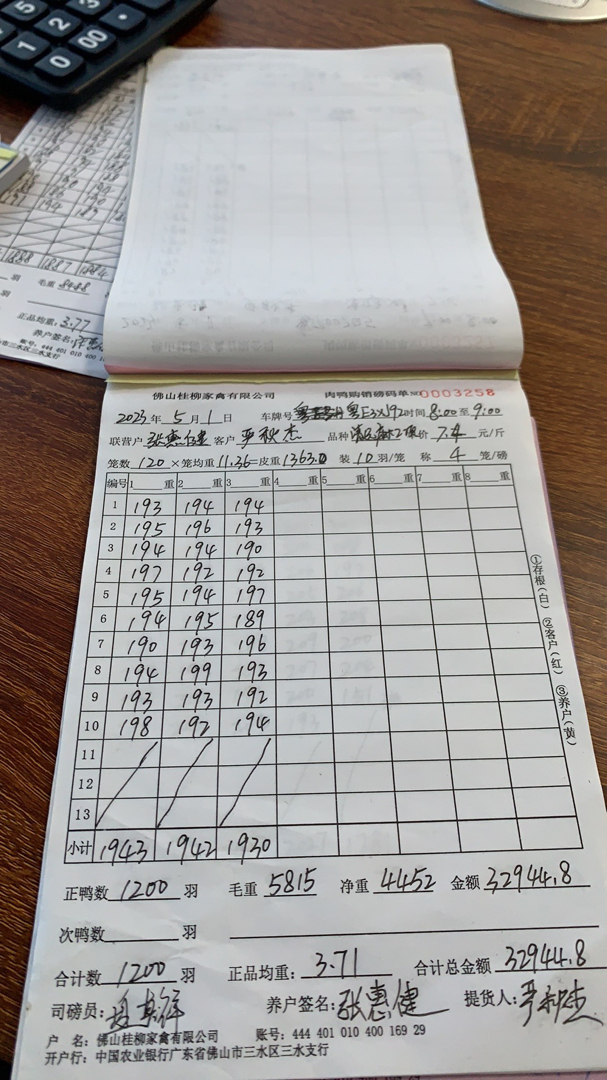 5 2
0 00
1888 1887 1884
羽 毛重 8488
羽
正品均重: 3.77
养户签名:
账号: 444 401 010 400 1
市三水区三水支行
佛山桂柳家禽有限公司 肉鸭购销磅码单 NO 0003258
2023年5月1日 车牌号 粤E3X192 时间 8:00 至 9:00
联营户 张惠健 客户 严秋杰 品种 价 7.4 元/斤
笼数 120 ×笼均重 11.36=皮重 1363.0 装 10 羽/笼 称 4 笼/磅
编号 1 重 2 重 3 重 4 重 5 重 6 重 7 重 8 重
1 193 194 194
2 195 196 193
3 194 194 190
4 197 192 192
5 195 194 197
6 194 195 189
7 190 193 196
8 194 199 193
9 193 193 192
10 198 192 194
11
12
13
小计 1943 1942 1930
①存根(白) ②客户(红) ③养户(黄)
正鸭数 1200 羽 毛重 5815 净重 4452 金额 32944.8
次鸭数 羽
合计数 1200 羽 正品均重: 3.71 合计总金额 32944.8
司磅员: 养户签名: 张惠健 提货人: 严秋杰
户 名: 佛山桂柳家禽有限公司 账号: 444 401 010 400 169 29
开户行: 中国农业银行广东省佛山市三水区三水支行